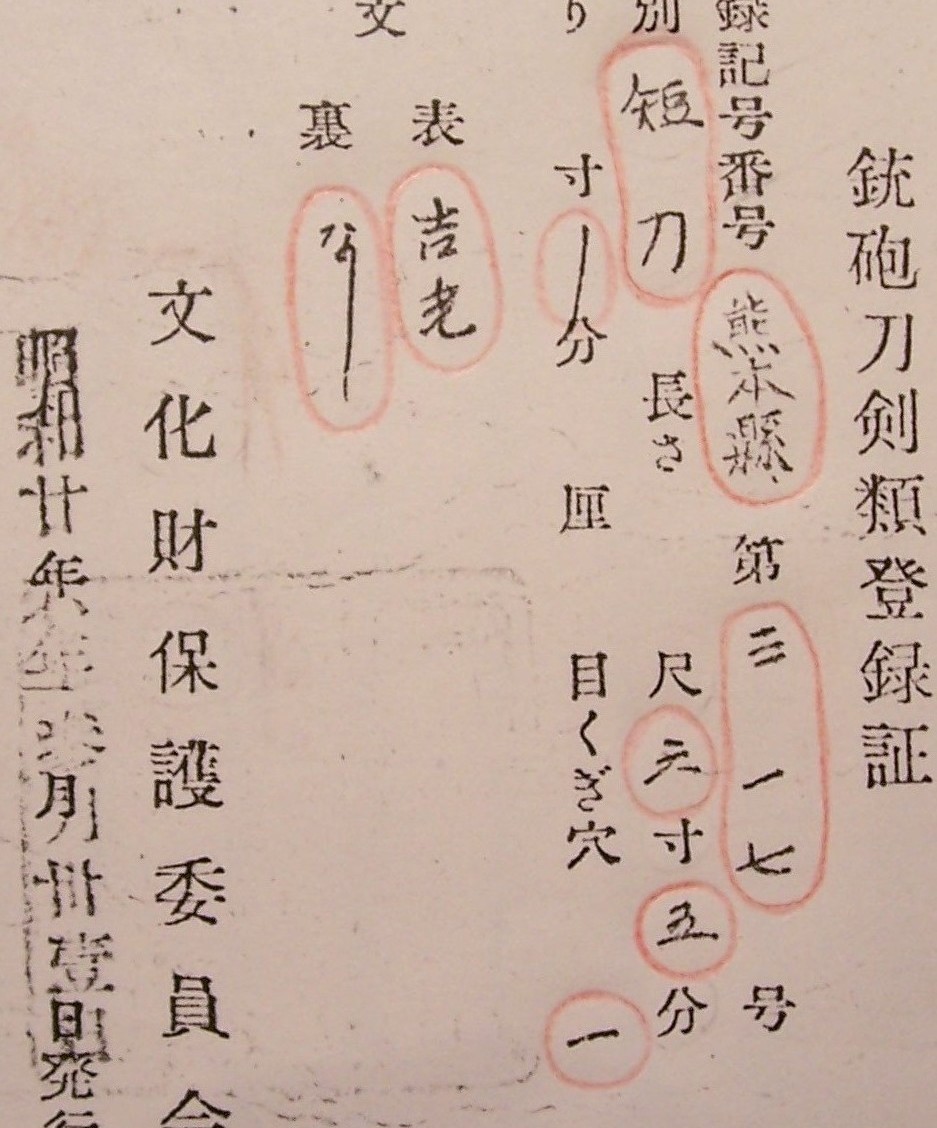 銃砲刀剣類登録証
録記号番号 熊本縣 第 三一七 号
別 短刀 長さ 尺 六 寸 五 分
り 寸 ー 分 厘 目くぎ穴 一
文
表 吉光
裏 なし
文化財保護委員会
昭和廿六年参月卅壹日発行